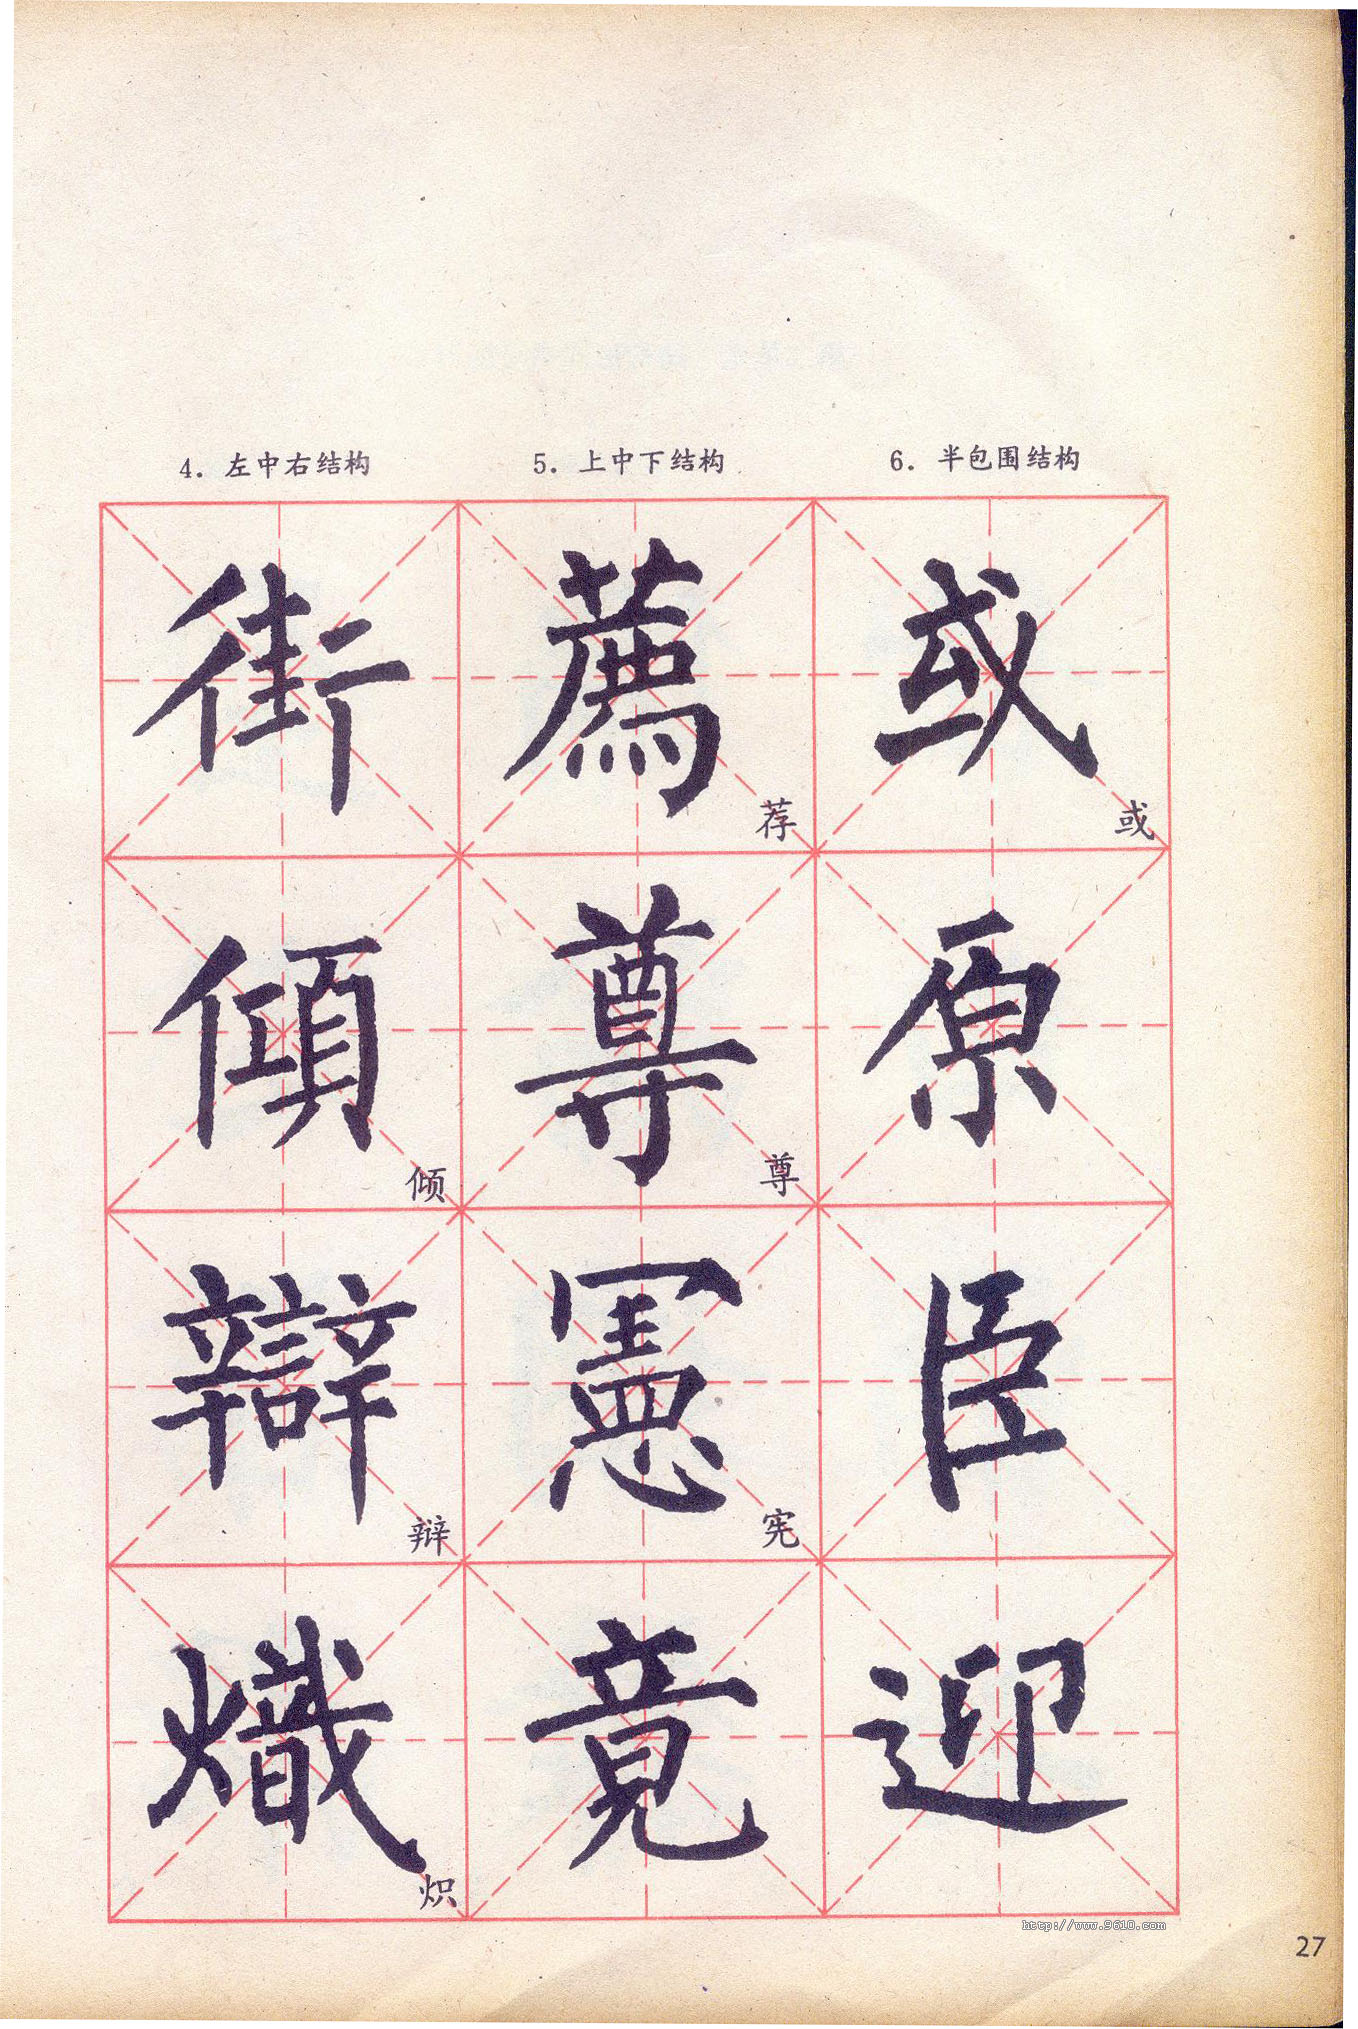 4. 左中右结构 5. 上中下结构 6. 半包围结构
街 薦 或
荐 或
傾 尊 原
倾 尊
辯 憲 臣
辩 宪
熾 竟 迎
炽
http://www.9610.com
27